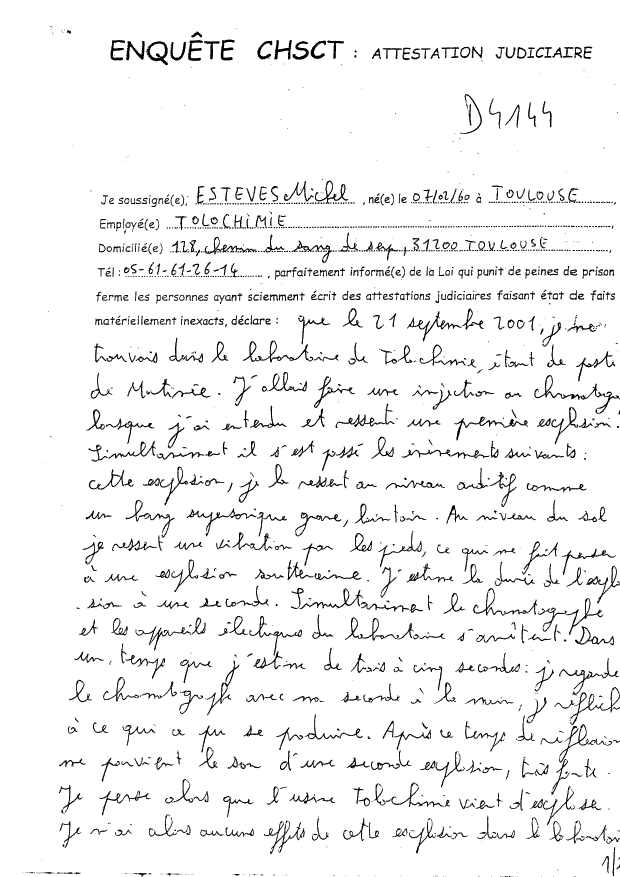 ENQUÊTE CHSCT : ATTESTATION JUDICIAIRE
D4144
Je soussigné(e), ESTEVES Michel , né(e) le 07/02/60 à TOULOUSE ,
Employé(e) TOLOCHIMIE ,
Domicilié(e) 128, chemin du sang de serp, 31200 TOULOUSE
Tél : 05-61-61-26-14 , parfaitement informé(e) de la Loi qui punit de peines de prison
ferme les personnes ayant sciemment écrit des attestations judiciaires faisant état de faits
matériellement inexacts, déclare : que le 21 septembre 2001, je me
trouvais dans le laboratoire de Tolochimie, étant de poste
de Matinée. J'allais faire une injection au chromatog
lorsque j'ai entendu et ressenti une première explosion.
Simultanément il s'est passé les évènements suivants :
cette explosion, je la ressent au niveau auditif comme
un bang supersonique grave, lointain. Au niveau du sol
je ressent une vibration par les pieds, ce qui me fait penser
à une explosion souterraine. J'estime la durée de l'explo
-sion à une seconde. Simultanément le chromatographe
et les appareils électriques du laboratoire s'arrêtent. Dans
un temps que j'estime de trois à cinq secondes : je regarde
le chromatographe avec ma seconde à la main, je réfléch
à ce qui a pu se produire. Après ce temps de réflexion
me parvient le son d'une seconde explosion, très forte.
Je pense alors que l'usine Tolochimie vient d'explosé.
Je n'ai alors aucuns effets de cette explosion dans le laboratoi
1/2